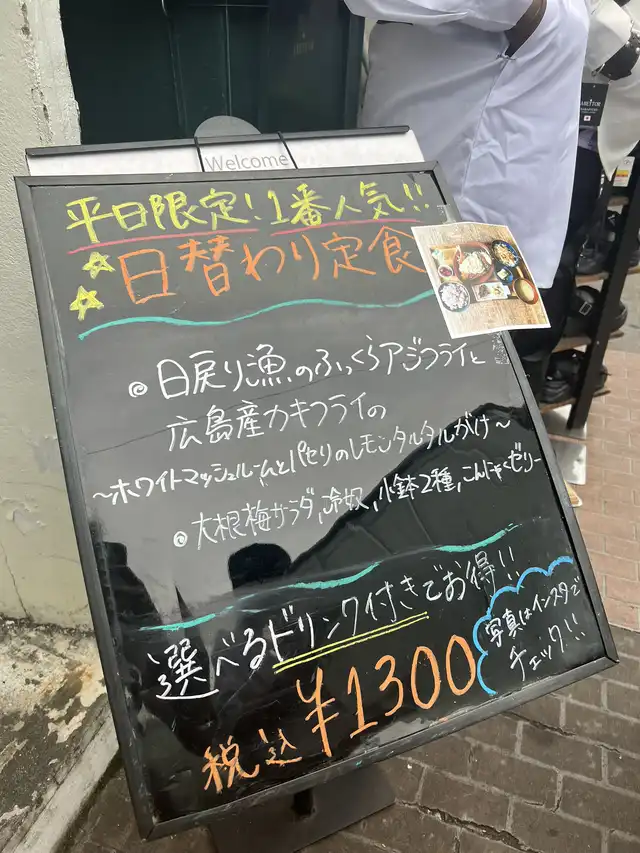 Welcome
平日限定!1番人気!!
☆日替わり定食
☆
◎日戻り漁のふっくらアジフライと
広島産カキフライの
~ホワイトマッシュルームとパセリのレモンタルタルがけ~
◎大根梅サラダ,冷奴,小鉢2種,こんにゃくゼリー
選べるドリンク付きでお得!!
税込¥1300
写真はインスタで
チェック!!